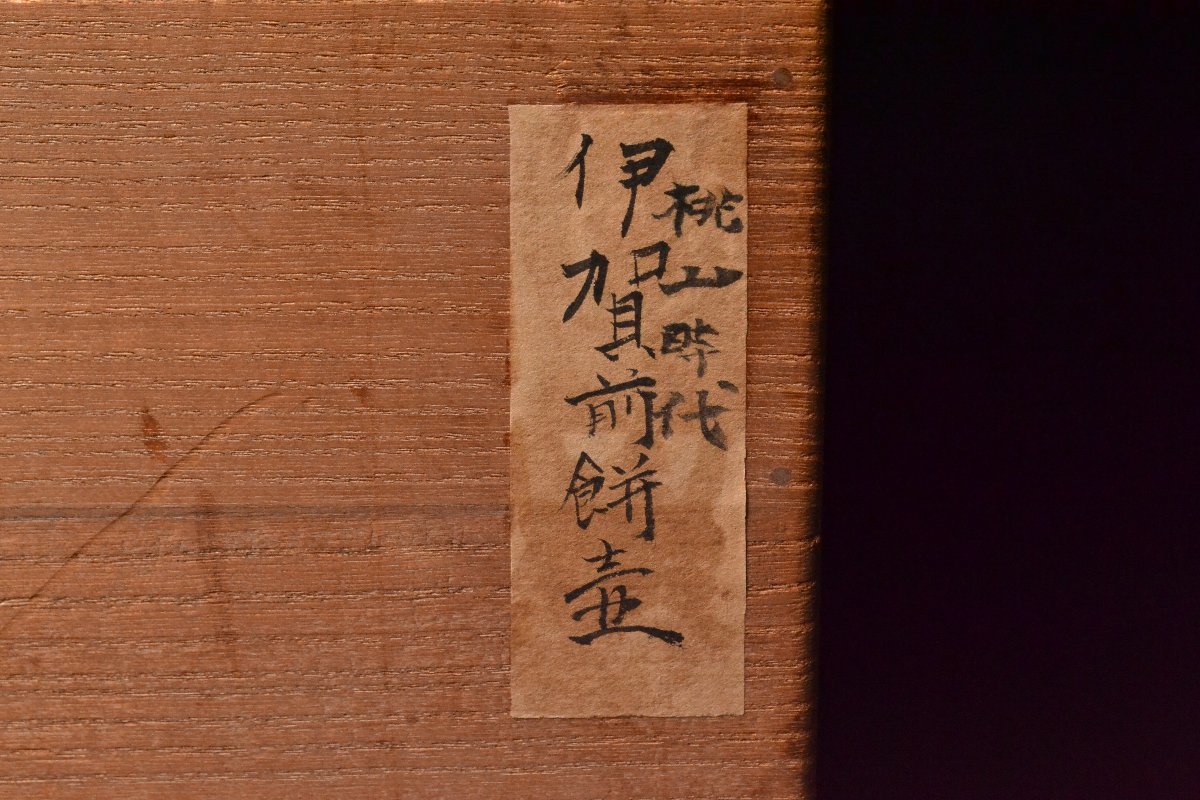 桃山時代
伊賀前餅壺